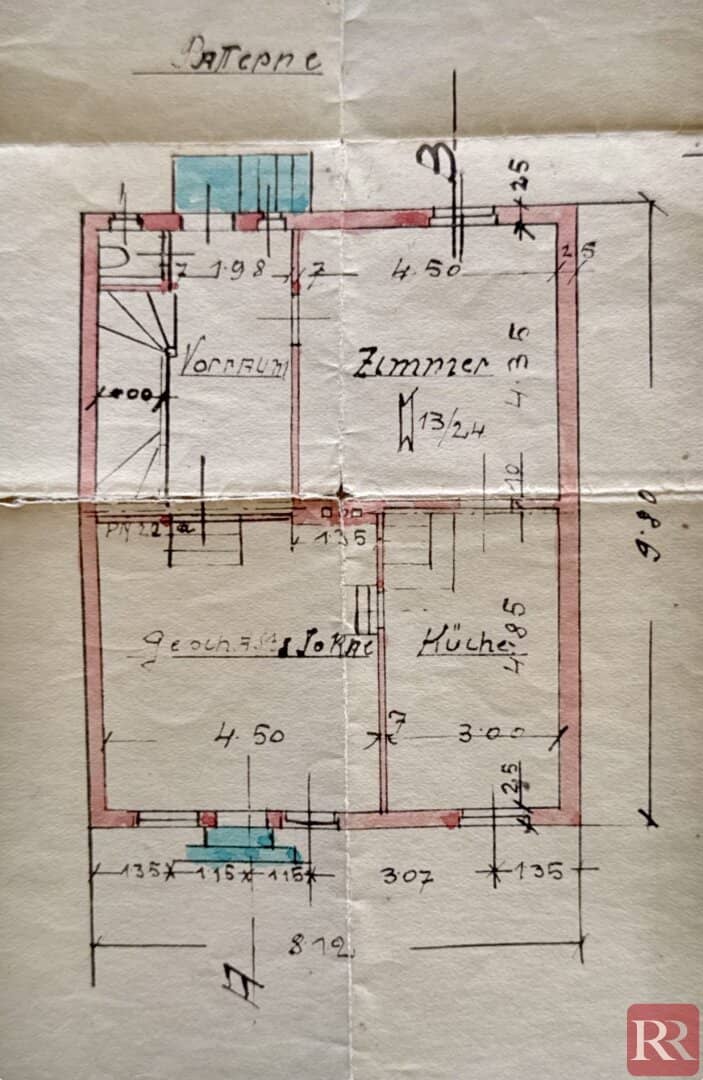 Parterre
B
25
7
1.98
7
4.50
25
Vorraum
Zimmer
4.35
13/24
10
135
9.80
Geschäftslokal
Küche
4.85
4.50
7
3.00
25
135
115
115
3.07
135
8.12
A
RR